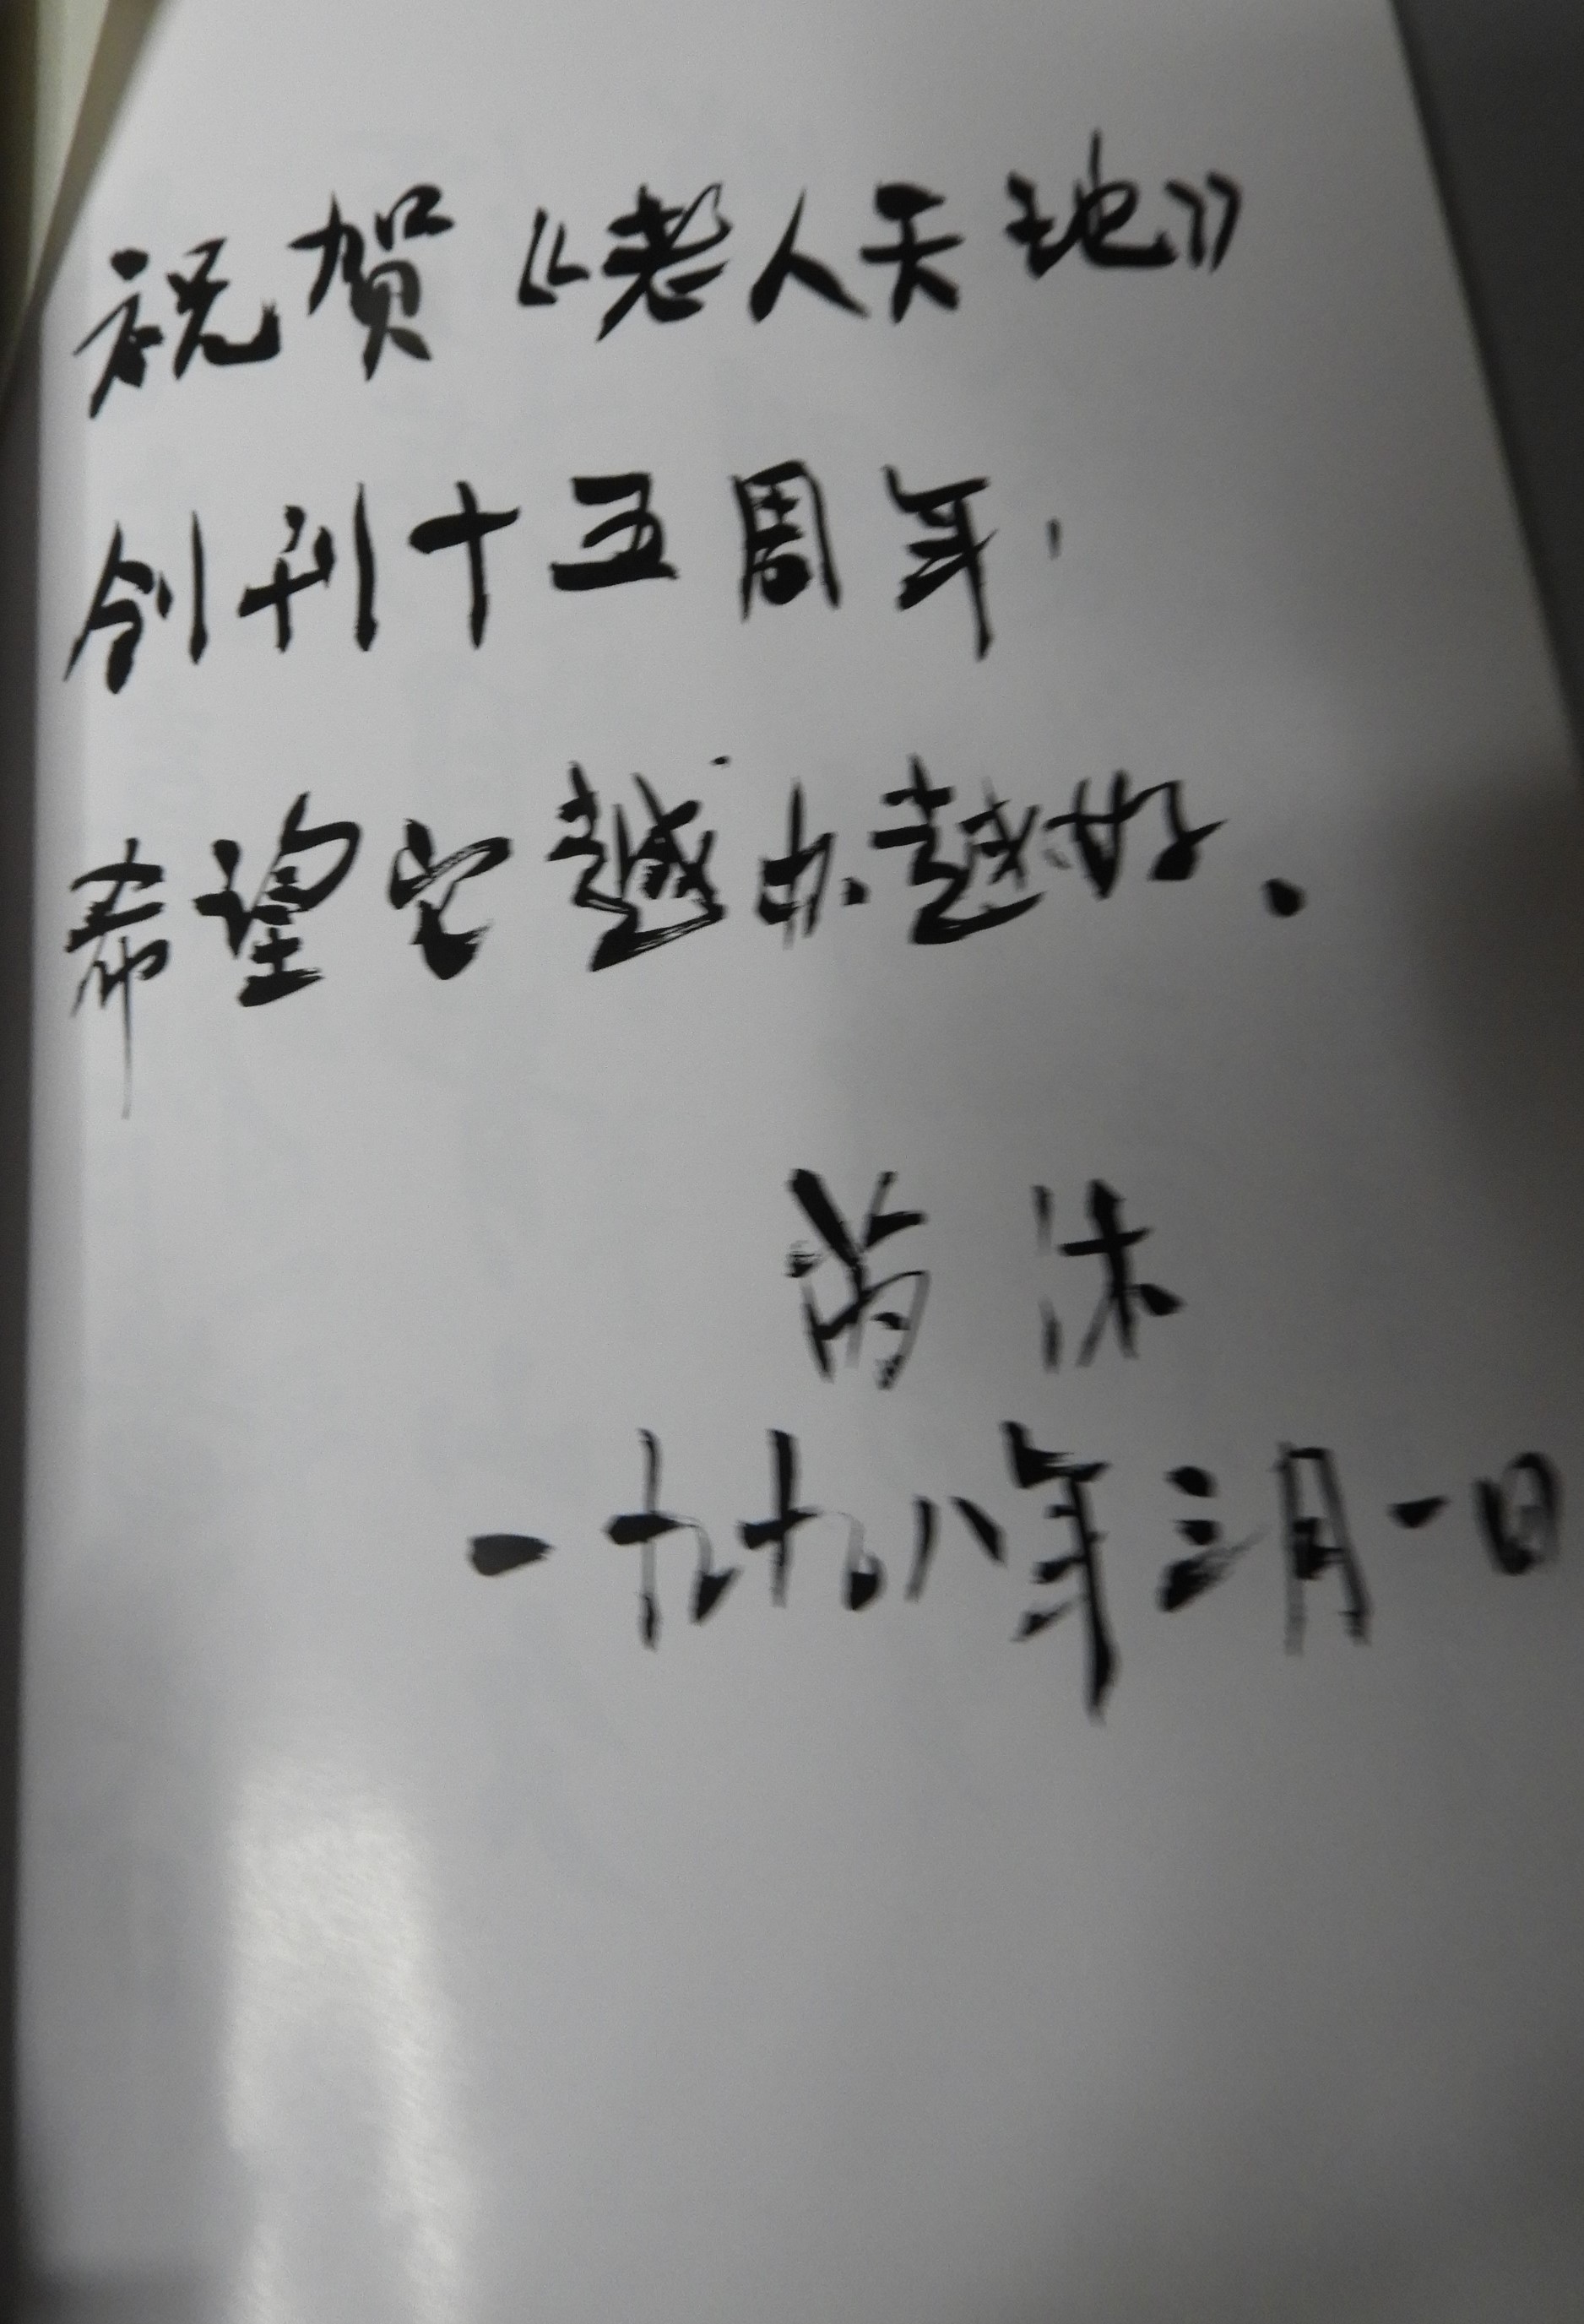 祝贺《老人天地》
创刊十五周年，
希望它越办越好.
芮沐
一九九八年三月一日